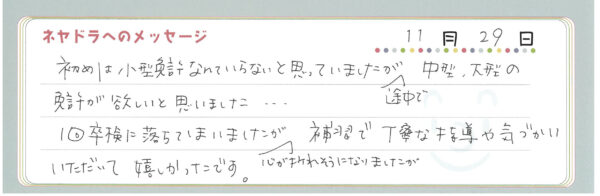 ネヤドラへのメッセージ 11月29日
初めは小型免許なんていらないと思っていましたが 途中で 中型、大型の
免許が欲しいと思いました…
1回卒検に落ちてしまいましたが 心が折れそうになりましたが 補習で丁寧な指導や気づかい
いただいて嬉しかったです。